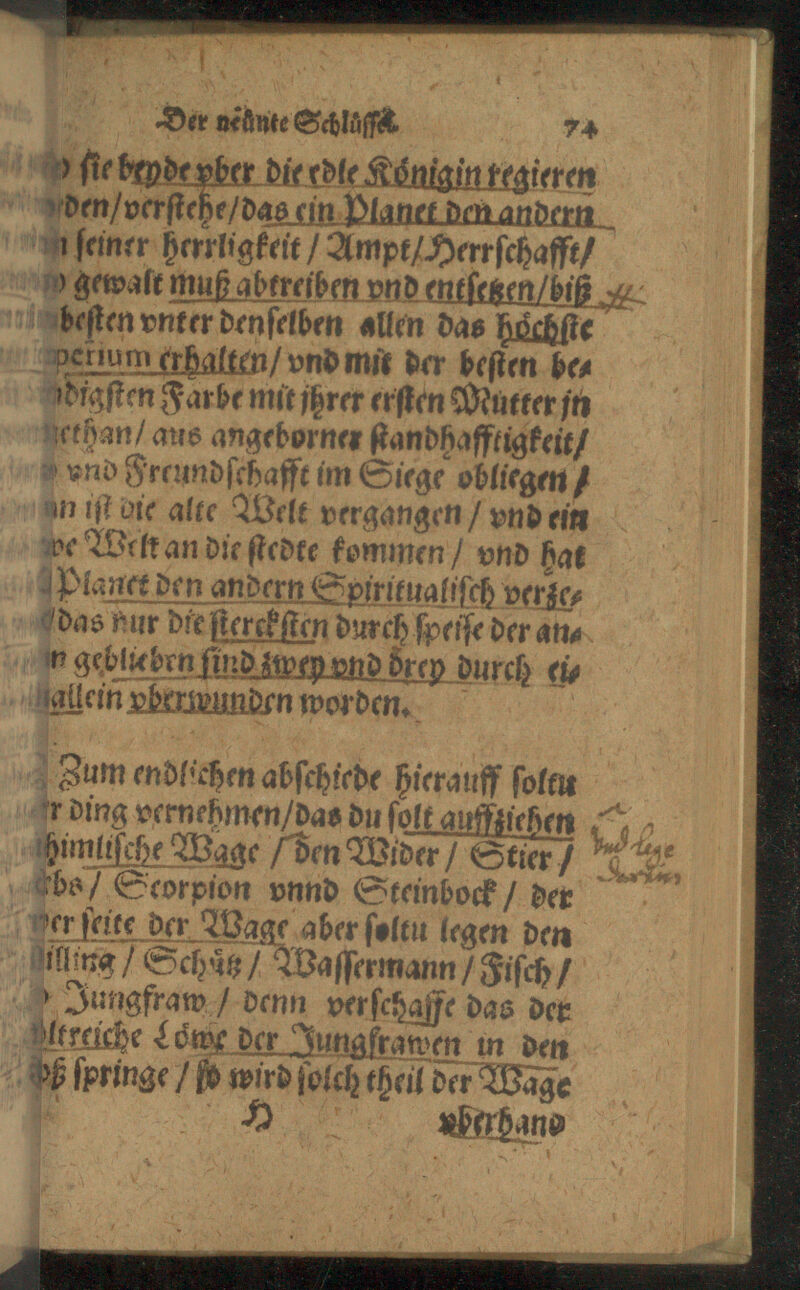 Der neůnte Schlůſſel. 74
ſie beyde vber die edle Kőnigin regieren
den/verſtehe/das ein Planet den andern
ſeiner herrligkeit / Ampt/ Herrſchafft/
gewalt muß abtreiben vnd entſetzen/biß
beſten vnter denſelben allen das hőchſte
perium erhalten/ vnd mit der beſten be⸗
digſten Farbe mit jhrer erſten Mutter jn
gethan/ aus angeborner ſtandhafftigkeit/
vnd Freundſchafft im Siege obliegen /
iſt die alte Welt vergangen / vnd ein
we Welt an die ſtedte kommen / vnd hat
Planet den andern Spiritualiſch verze⸗
das nur die ſterckſten durch ſpeiſe der an⸗
geblieben ſind zwey vnd drey durch ei⸗
allein vberwunden worden.
Zum endlichen abſchiede hierauff ſoltu
r ding vernehmen/das du ſolt auffziehen
himliſche Wage / den Wider / Stier /
bs / Scorpion vnnd Steinbock / der
der ſeite der Wage aber ſoltu legen den
illing / Schůtz / Waſſermann / Fiſch /
Jungfraw / denn verſchaffe das der
ltreiche Lőwe der Jungfrawen in den
oß ſpringe / ſo wird ſolch theil der Wage
H vberhand